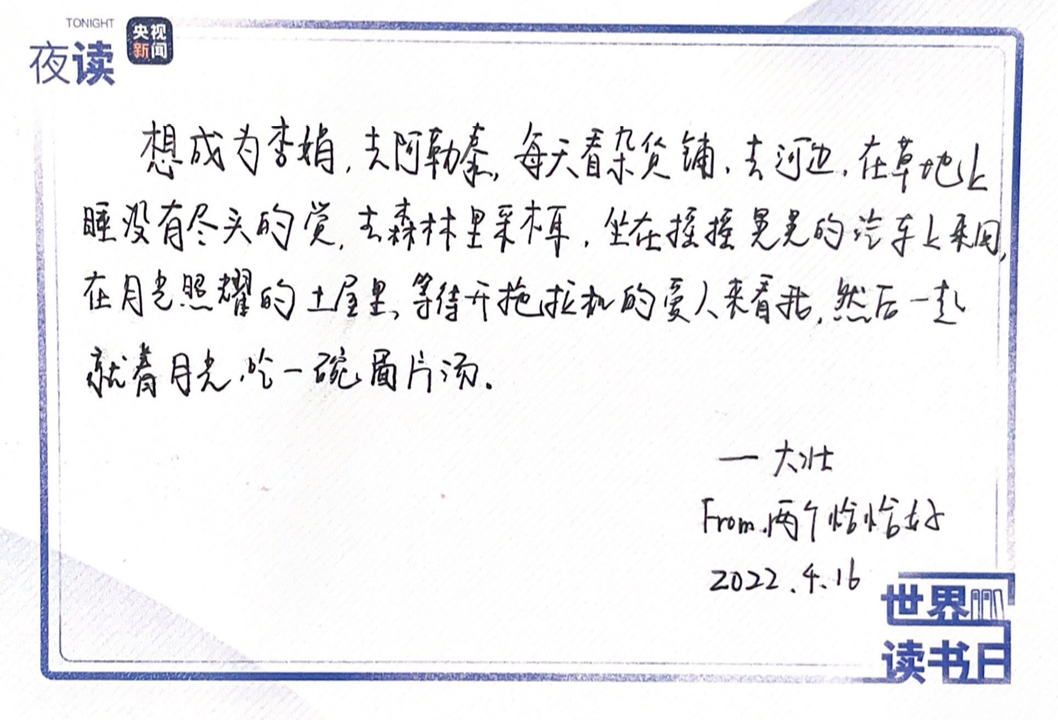 TONIGHT
夜读
央视
新闻
想成为李娟，去阿勒泰，每天看杂货铺，去河边，在草地上
睡没有尽头的觉，去森林里采木耳，坐在摇摇晃晃的汽车上来回，
在月光照耀的土屋里，等待开拖拉机的爱人来看我，然后一起
就着月光，吃一碗面片汤。
— 大壮
From 两个恰恰好
2022.4.16
世界
读书日